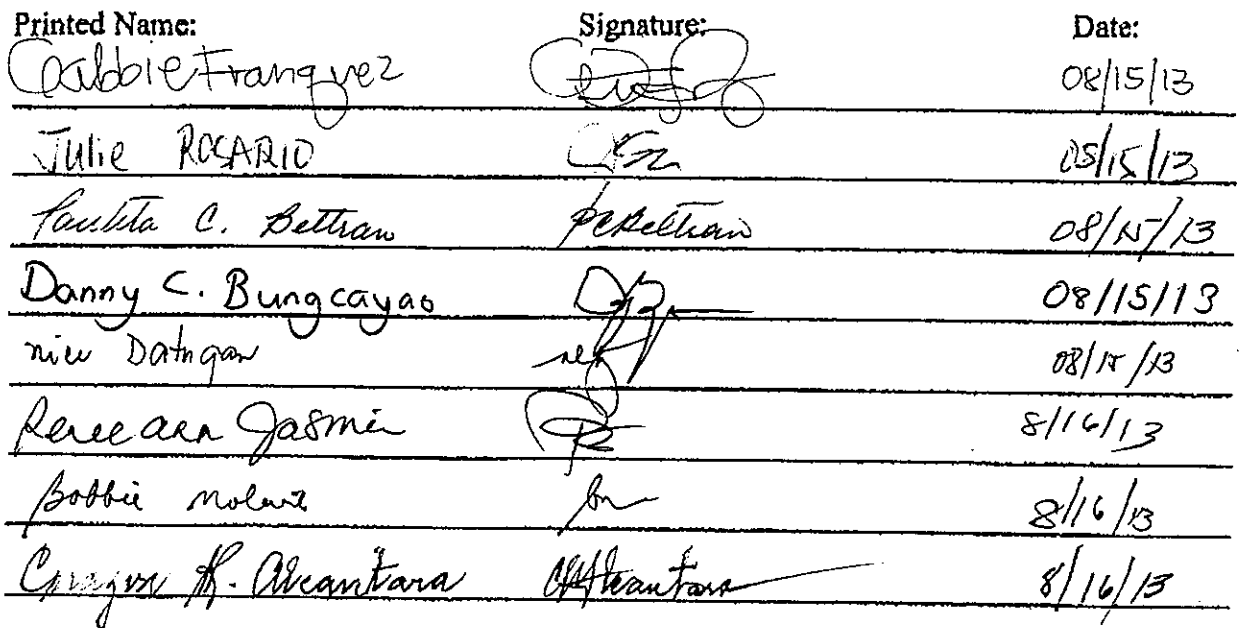 Printed Name: Signature: Date:
Franquez 08/15/13
Julie ROSARIO 08/15/13
C. Beltran pcBeltran 08/15/13
Danny C. Bungcayao 08/15/13
08/15/13
Renee ann Jasmin 8/16/13
Bobbie 8/16/13
R. Alcantara Alcantara 8/16/13